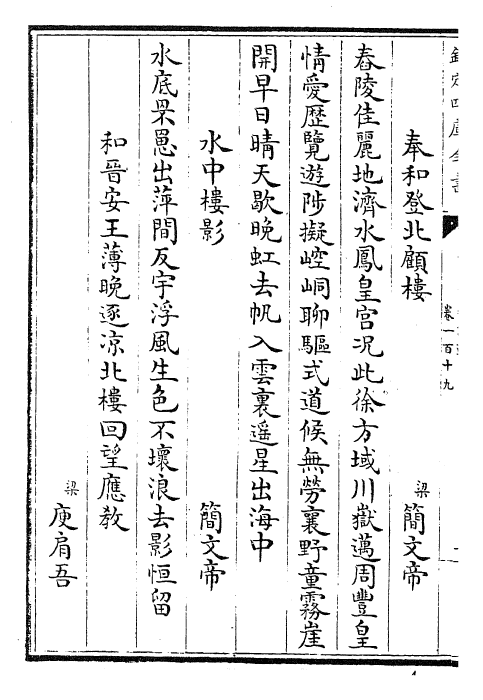 欽定四庫全書
卷一百十九
奉和登北顧樓
梁
簡文帝
春陵佳麗地濟水鳳皇宮况此徐方域川嶽邁周豐皇
情愛歷覽遊陟擬崆峒聊驅式道候無勞襄野童霧崖
開早日晴天歇晚虹去帆入雲裏遥星出海中
水中樓影
簡文帝
水底罘罳出萍間反宇浮風生色不壞浪去影恒留
和晉安王薄晚逐凉北樓回望應教
梁
庾肩吾